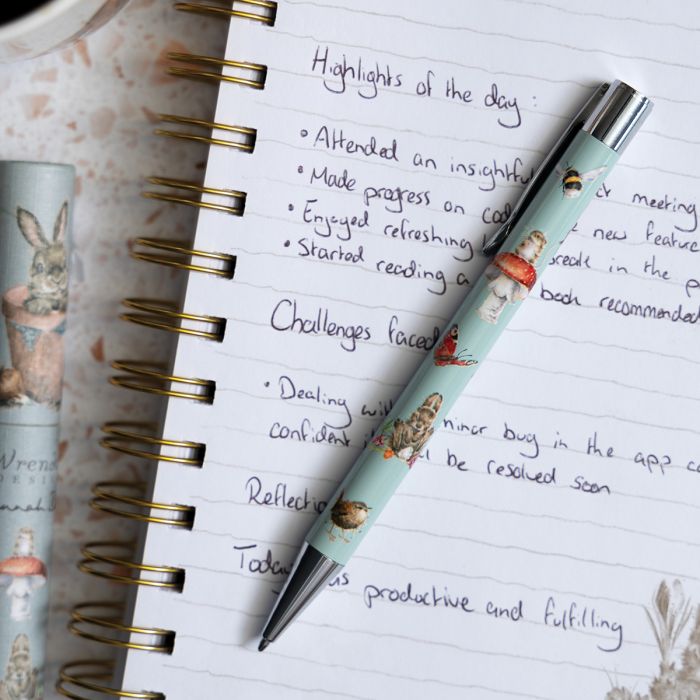 Highlights of the day:
• Attended an insightfu ck meeting
• Made progress on cod new featur
• Enjoyed refreshing break in the p
• Started reading a book recommended
Challenges faced
• Dealing wit minor bug in the app c
confident i l be resolved soon
Reflectio
Today as productive and fulfilling
Wren
DESI
nnah D